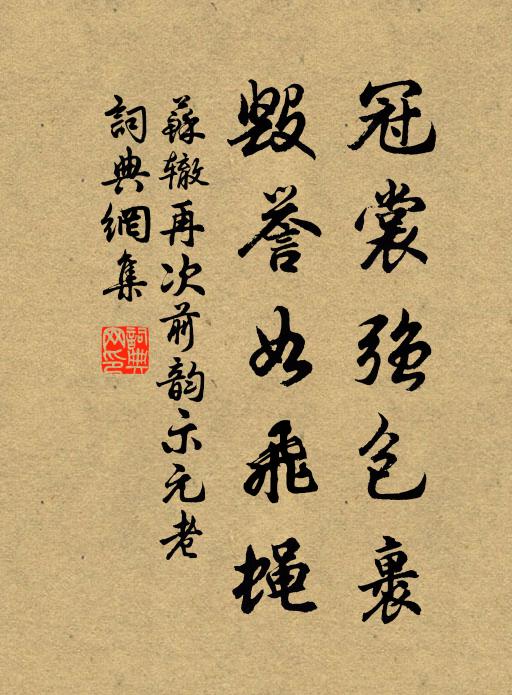 冠裳強包裹
毀譽如飛蝇
蘇辙再次前韵示元老
詞典網集
詞典网印